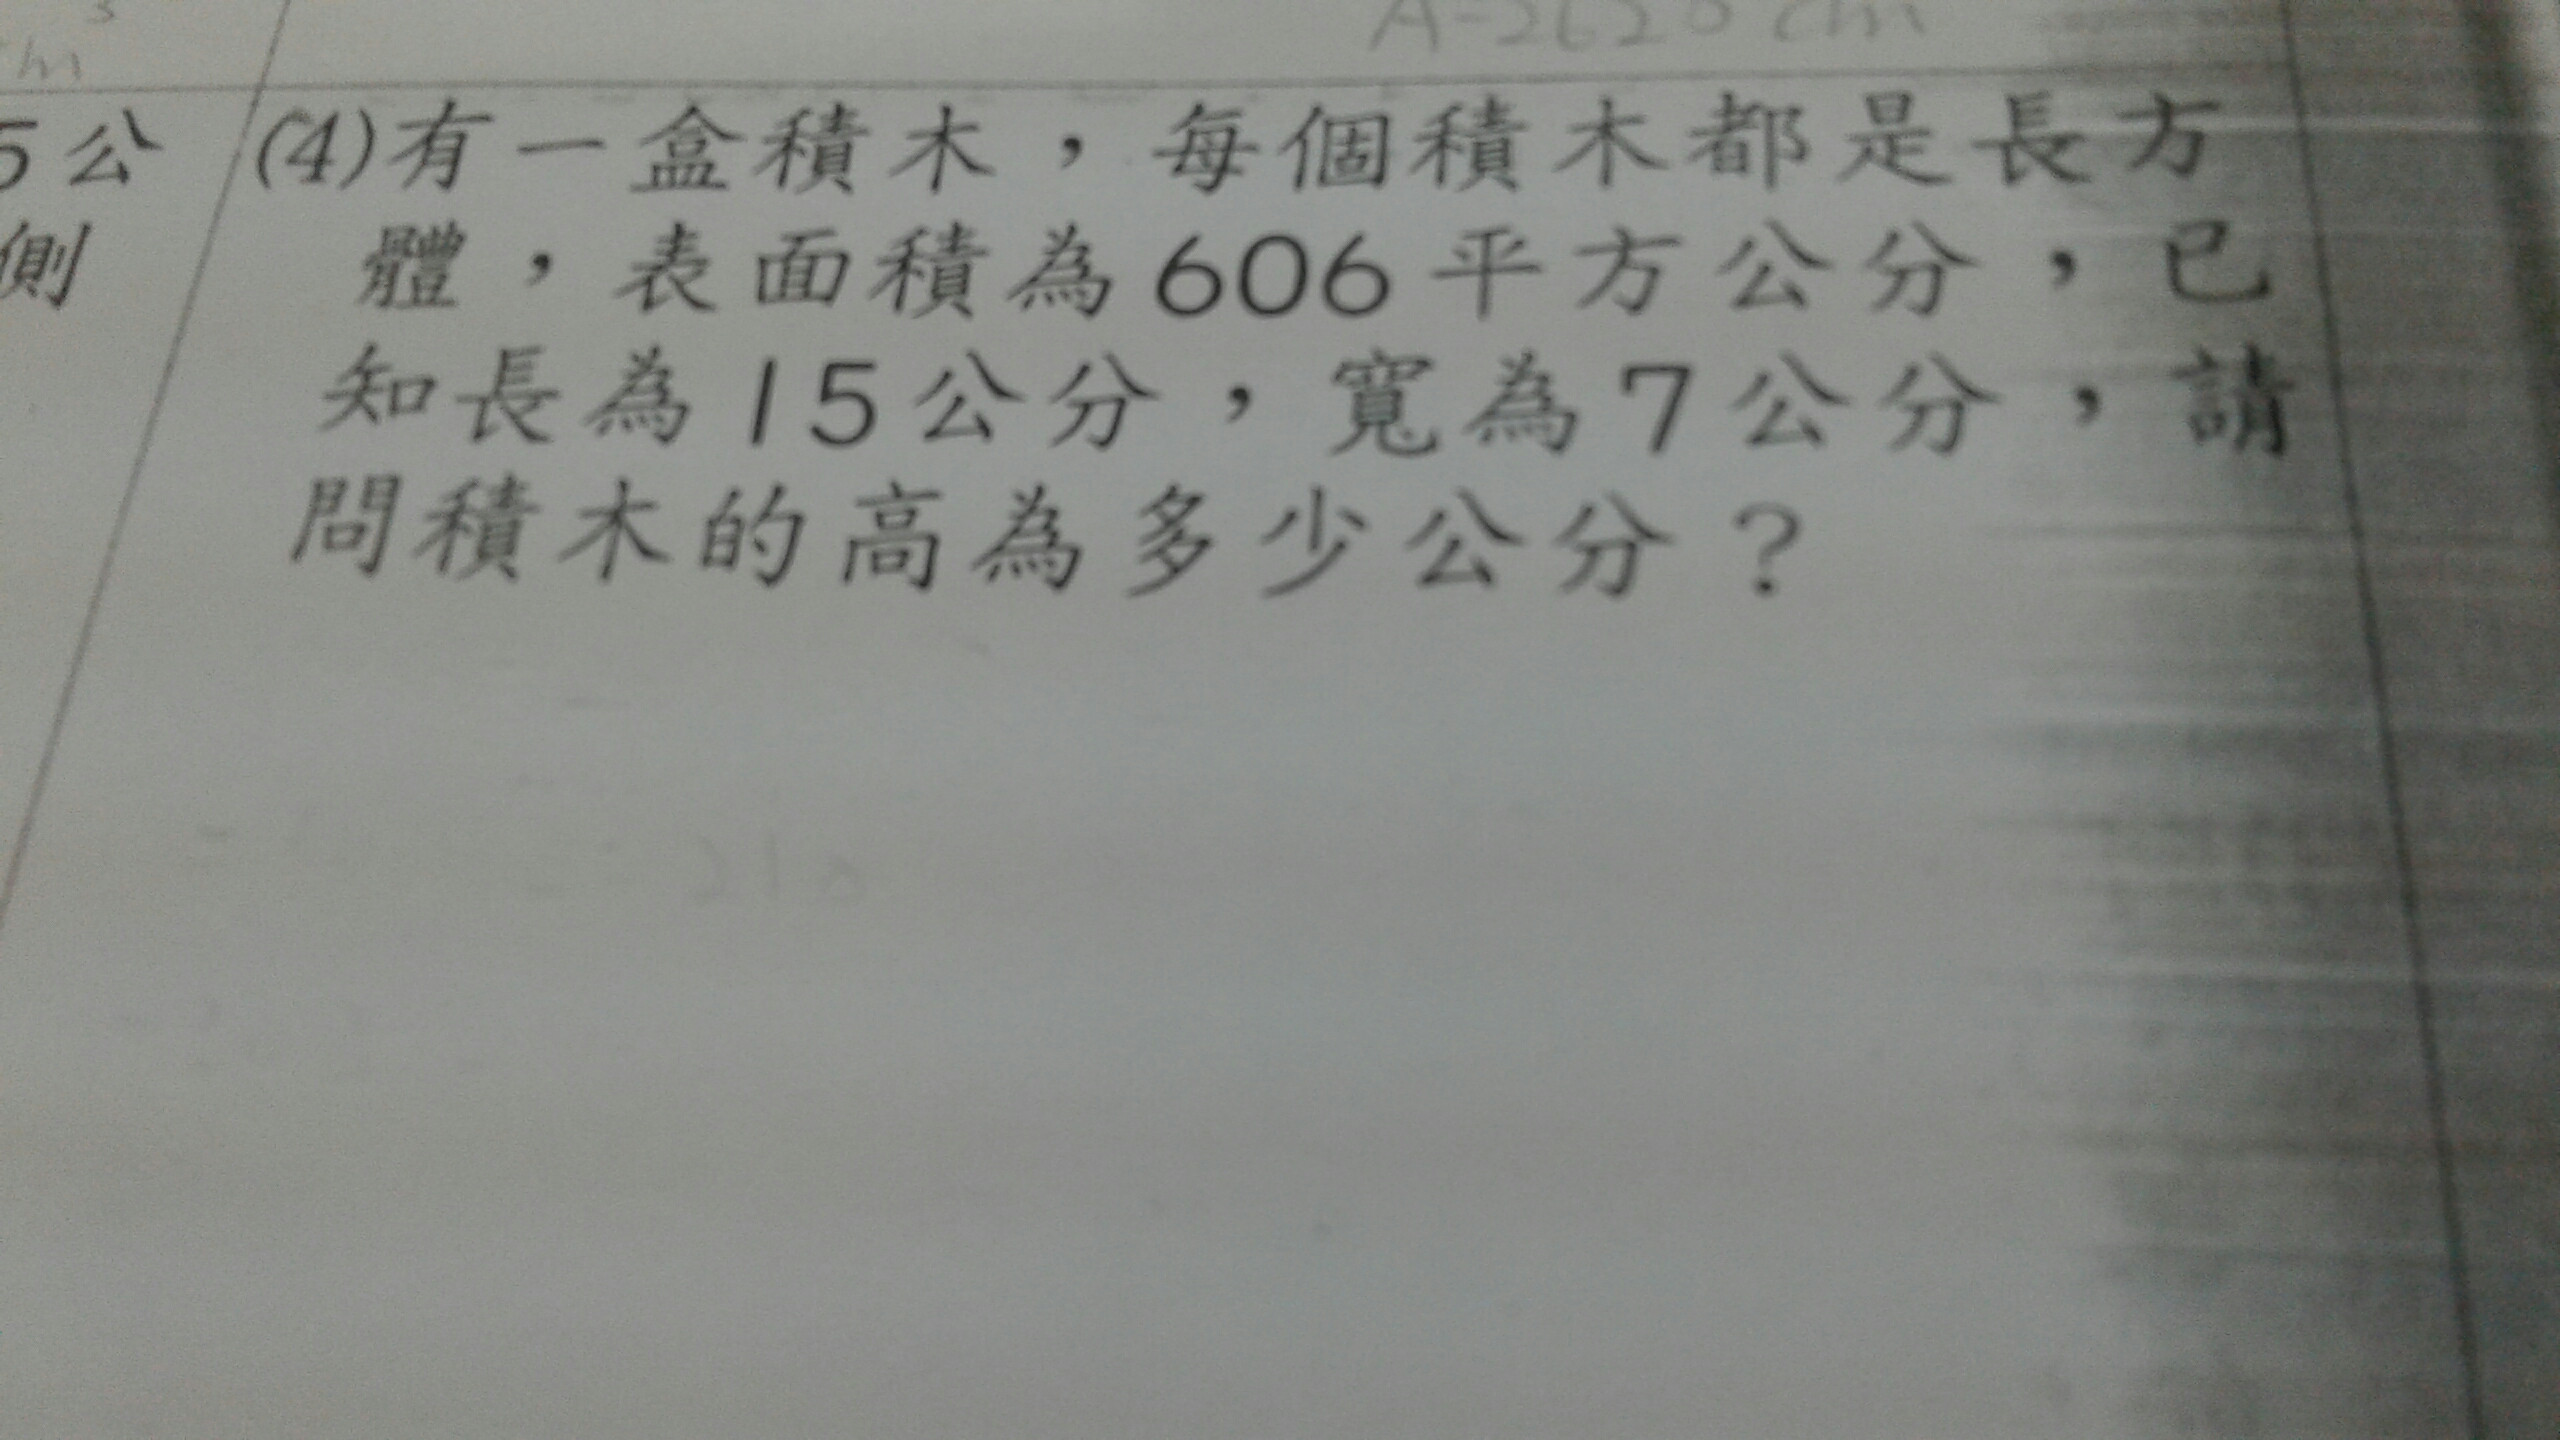 A=2620 cm
5公
側
(4)有一盒積木，每個積木都是長方
體，表面積為606平方公分，已
知長為15公分，寬為7公分，請
問積木的高為多少公分？